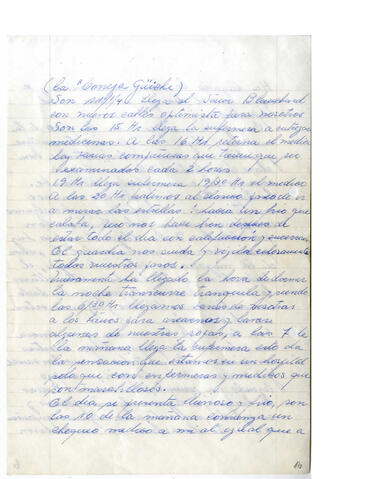 (la "Coneja Güiski")
Son llega el Javier Blanchard
con nuevos cables optimista para nosotros
Son las 15 Hs llega la enfermera a entregar
medicinas. A las 16 Hs retorna el medico
hay varios compañeros que tienen que ser
examinados cada 2 horas.
19 Hs llega enfermera el medico
A las 20 Hs salimos al
a mirar las estrellas! habia un frio que
calaba, pero nos hace bien despues de
estar todo el dia con calefaccion y encerrados
El guardia nos cuida y vigila celosamente
todos nuestros pasos.
nuevamente ha llegado la hora de dormir
la noche transcurre tranquila y siendo
las 6/30 Hs llegamos
a los baños para asearnos y lavar
algunas de nuestras ropas, a las 7 de
la mañana llega la enfermera esto da
la sensacion que estamos en un hospital
solo que con enfermeras y medicos que
son maravillosos.
El dia se presenta lluvioso y frio, son
las 10 de la mañana comienza un
chequeo medico a mi al igual que a